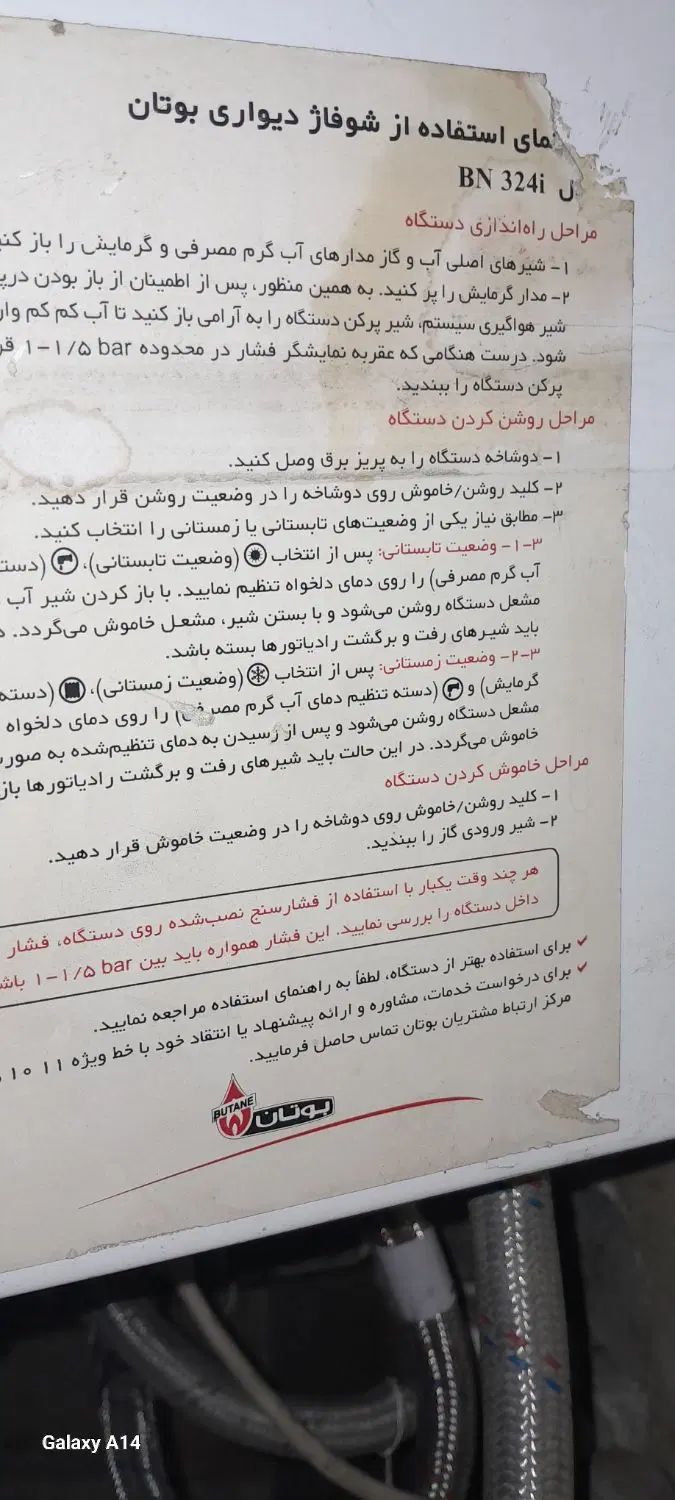 نمای استفاده از شوفاژ دیواری بوتان
ل BN 324i
مراحل راه‌اندازی دستگاه
۱- شیرهای اصلی آب و گاز مدارهای آب گرم مصرفی و گرمایش را باز کنی
۲- مدار گرمایش را پر کنید. به همین منظور، پس از اطمینان از باز بودن درپ
شیر هواگیری سیستم، شیر پرکن دستگاه را به آرامی باز کنید تا آب کم کم وار
شود. درست هنگامی که عقربه نمایشگر فشار در محدوده ۱-۱/۵ bar قر
پرکن دستگاه را ببندید.
مراحل روشن کردن دستگاه
۱- دوشاخه دستگاه را به پریز برق وصل کنید.
۲- کلید روشن/خاموش روی دوشاخه را در وضعیت روشن قرار دهید.
۳- مطابق نیاز یکی از وضعیت‌های تابستانی یا زمستانی را انتخاب کنید.
۳-۱- وضعیت تابستانی: پس از انتخاب (وضعیت تابستانی)، (دست
آب گرم مصرفی) را روی دمای دلخواه تنظیم نمایید. با باز کردن شیر آب
مشعل دستگاه روشن می‌شود و با بستن شیر، مشعل خاموش می‌گردد. د
باید شیرهای رفت و برگشت رادیاتورها بسته باشد.
۳-۲- وضعیت زمستانی: پس از انتخاب (وضعیت زمستانی)، (دسته
گرمایش) و (دسته تنظیم دمای آب گرم مصرفی) را روی دمای دلخواه
مشعل دستگاه روشن می‌شود و پس از رسیدن به دمای تنظیم‌شده به صور
خاموش می‌گردد. در این حالت باید شیرهای رفت و برگشت رادیاتورها باز
مراحل خاموش کردن دستگاه
۱- کلید روشن/خاموش روی دوشاخه را در وضعیت خاموش قرار دهید.
۲- شیر ورودی گاز را ببندید.
هر چند وقت یکبار با استفاده از فشارسنج نصب‌شده روی دستگاه، فشار
داخل دستگاه را بررسی نمایید. این فشار همواره باید بین ۱-۱/۵ bar باش
✓ برای استفاده بهتر از دستگاه، لطفاً به راهنمای استفاده مراجعه نمایید.
✓ برای درخواست خدمات، مشاوره و ارائه پیشنهاد یا انتقاد خود با خط ویژه ۱۱ ۱۰
مرکز ارتباط مشتریان بوتان تماس حاصل فرمایید.
BUTANE بوتان
Galaxy A14